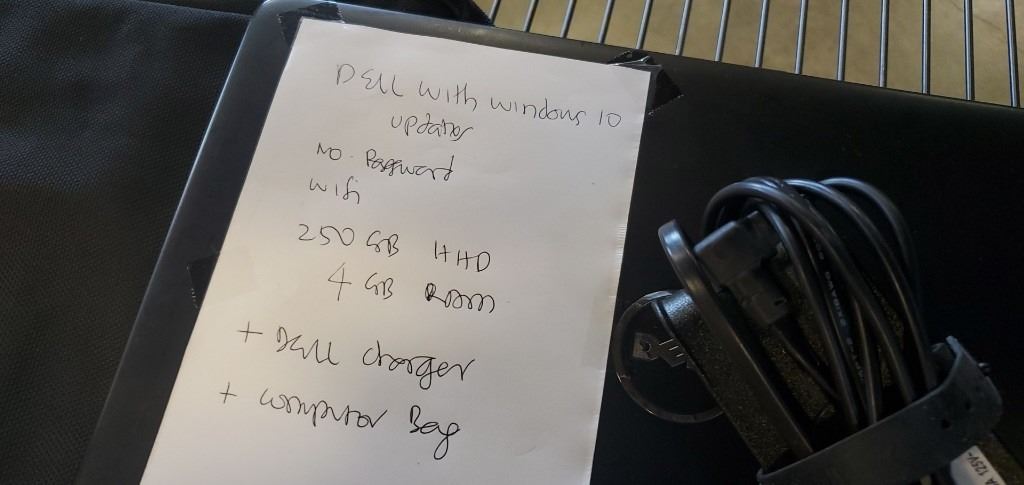 DELL with windows 10
updates
No. Password
wifi
250 GB HHD
4 GB Room
+ Dell charger
+ computor Bag
A 125V~